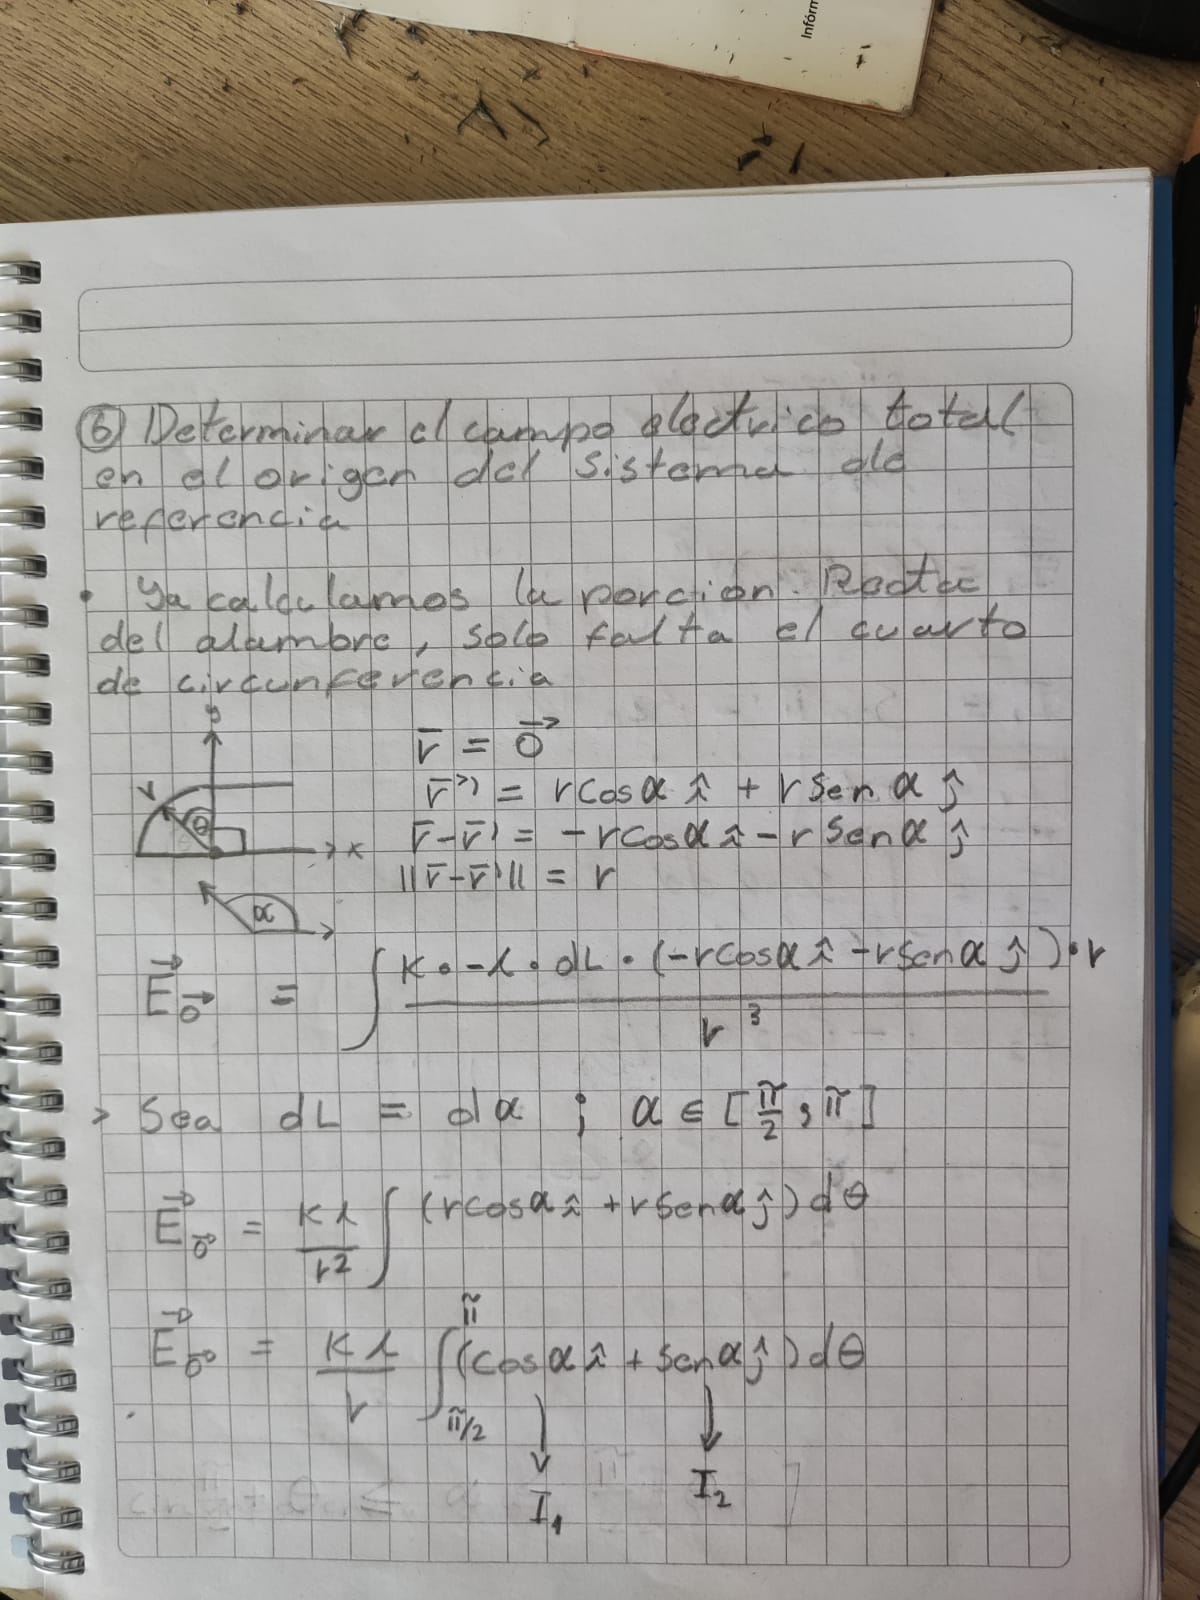 Infórm
⑥ Determinar el campo electrico total
en el origen del sistema de
referencia
• Ya calculamos la porcion Recta
del alambre, solo falta el cuarto
de circunferencia
y
r
θ
x
α
r̅ = 0⃗
r̅' = r cos α î + r sen α ĵ
r̅ - r̅' = -r cos α î - r sen α ĵ
||r̅ - r̅'|| = r
E⃗_0⃗ = ∫ K • -λ • dL • (-r cos α î - r sen α ĵ) • r / r³
> Sea dL = dα ; α ∈ [π/2, π]
E⃗_0⃗ = Kλ/r² ∫ (r cos α î + r sen α ĵ) dθ
E⃗_0⃗ = Kλ/r ∫_{π/2}^{π} (cos α î + sen α ĵ) dθ
I₁ I₂